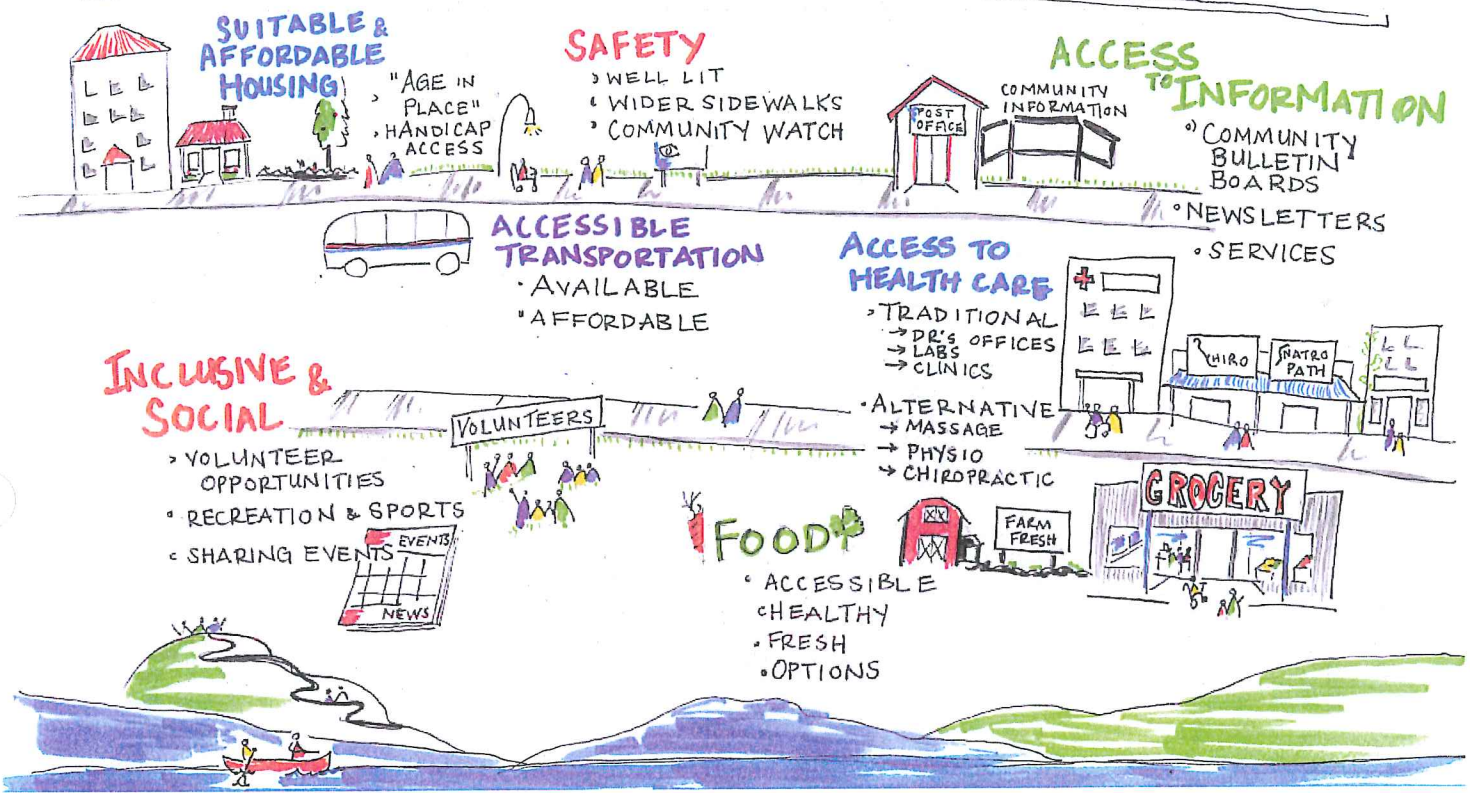 SUITABLE &
AFFORDABLE
HOUSING
"AGE IN
PLACE"
HANDICAP
ACCESS
SAFETY
WELL LIT
WIDER SIDEWALKS
COMMUNITY WATCH
POST
OFFICE
COMMUNITY
INFORMATION
ACCESS
TO INFORMATION
COMMUNITY
BULLETIN
BOARDS
NEWSLETTERS
SERVICES
ACCESSIBLE
TRANSPORTATION
AVAILABLE
AFFORDABLE
ACCESS TO
HEALTH CARE
TRADITIONAL
→ DR'S OFFICES
→ LABS
→ CLINICS
ALTERNATIVE
→ MASSAGE
→ PHYSIO
→ CHIROPRACTIC
CHIRO
NATRO
PATH
INCLUSIVE &
SOCIAL
VOLUNTEER
OPPORTUNITIES
RECREATION & SPORTS
SHARING EVENTS
VOLUNTEERS
EVENTS
NEWS
FOOD
ACCESSIBLE
HEALTHY
FRESH
OPTIONS
FARM
FRESH
GROCERY